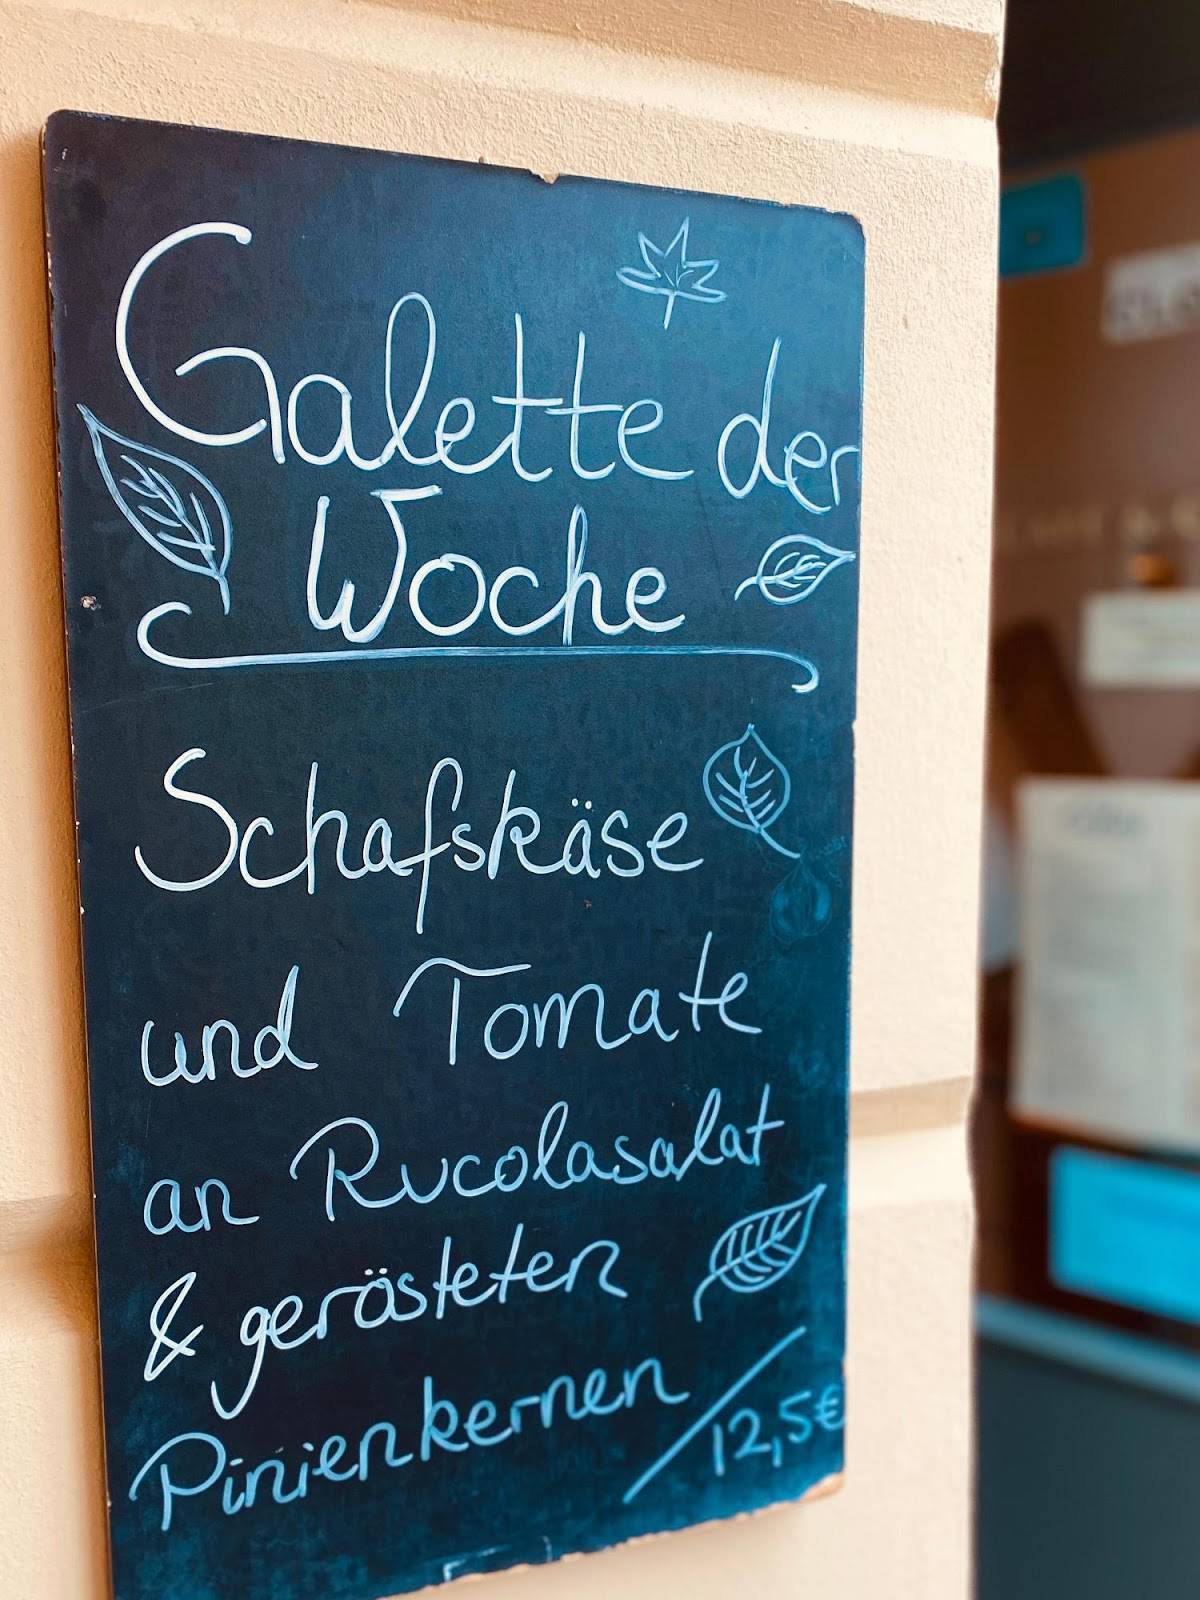 Galette der
Woche
Schafskäse
und Tomate
an Rucolasalat
& gerösteten
Pinienkernen
12,5€